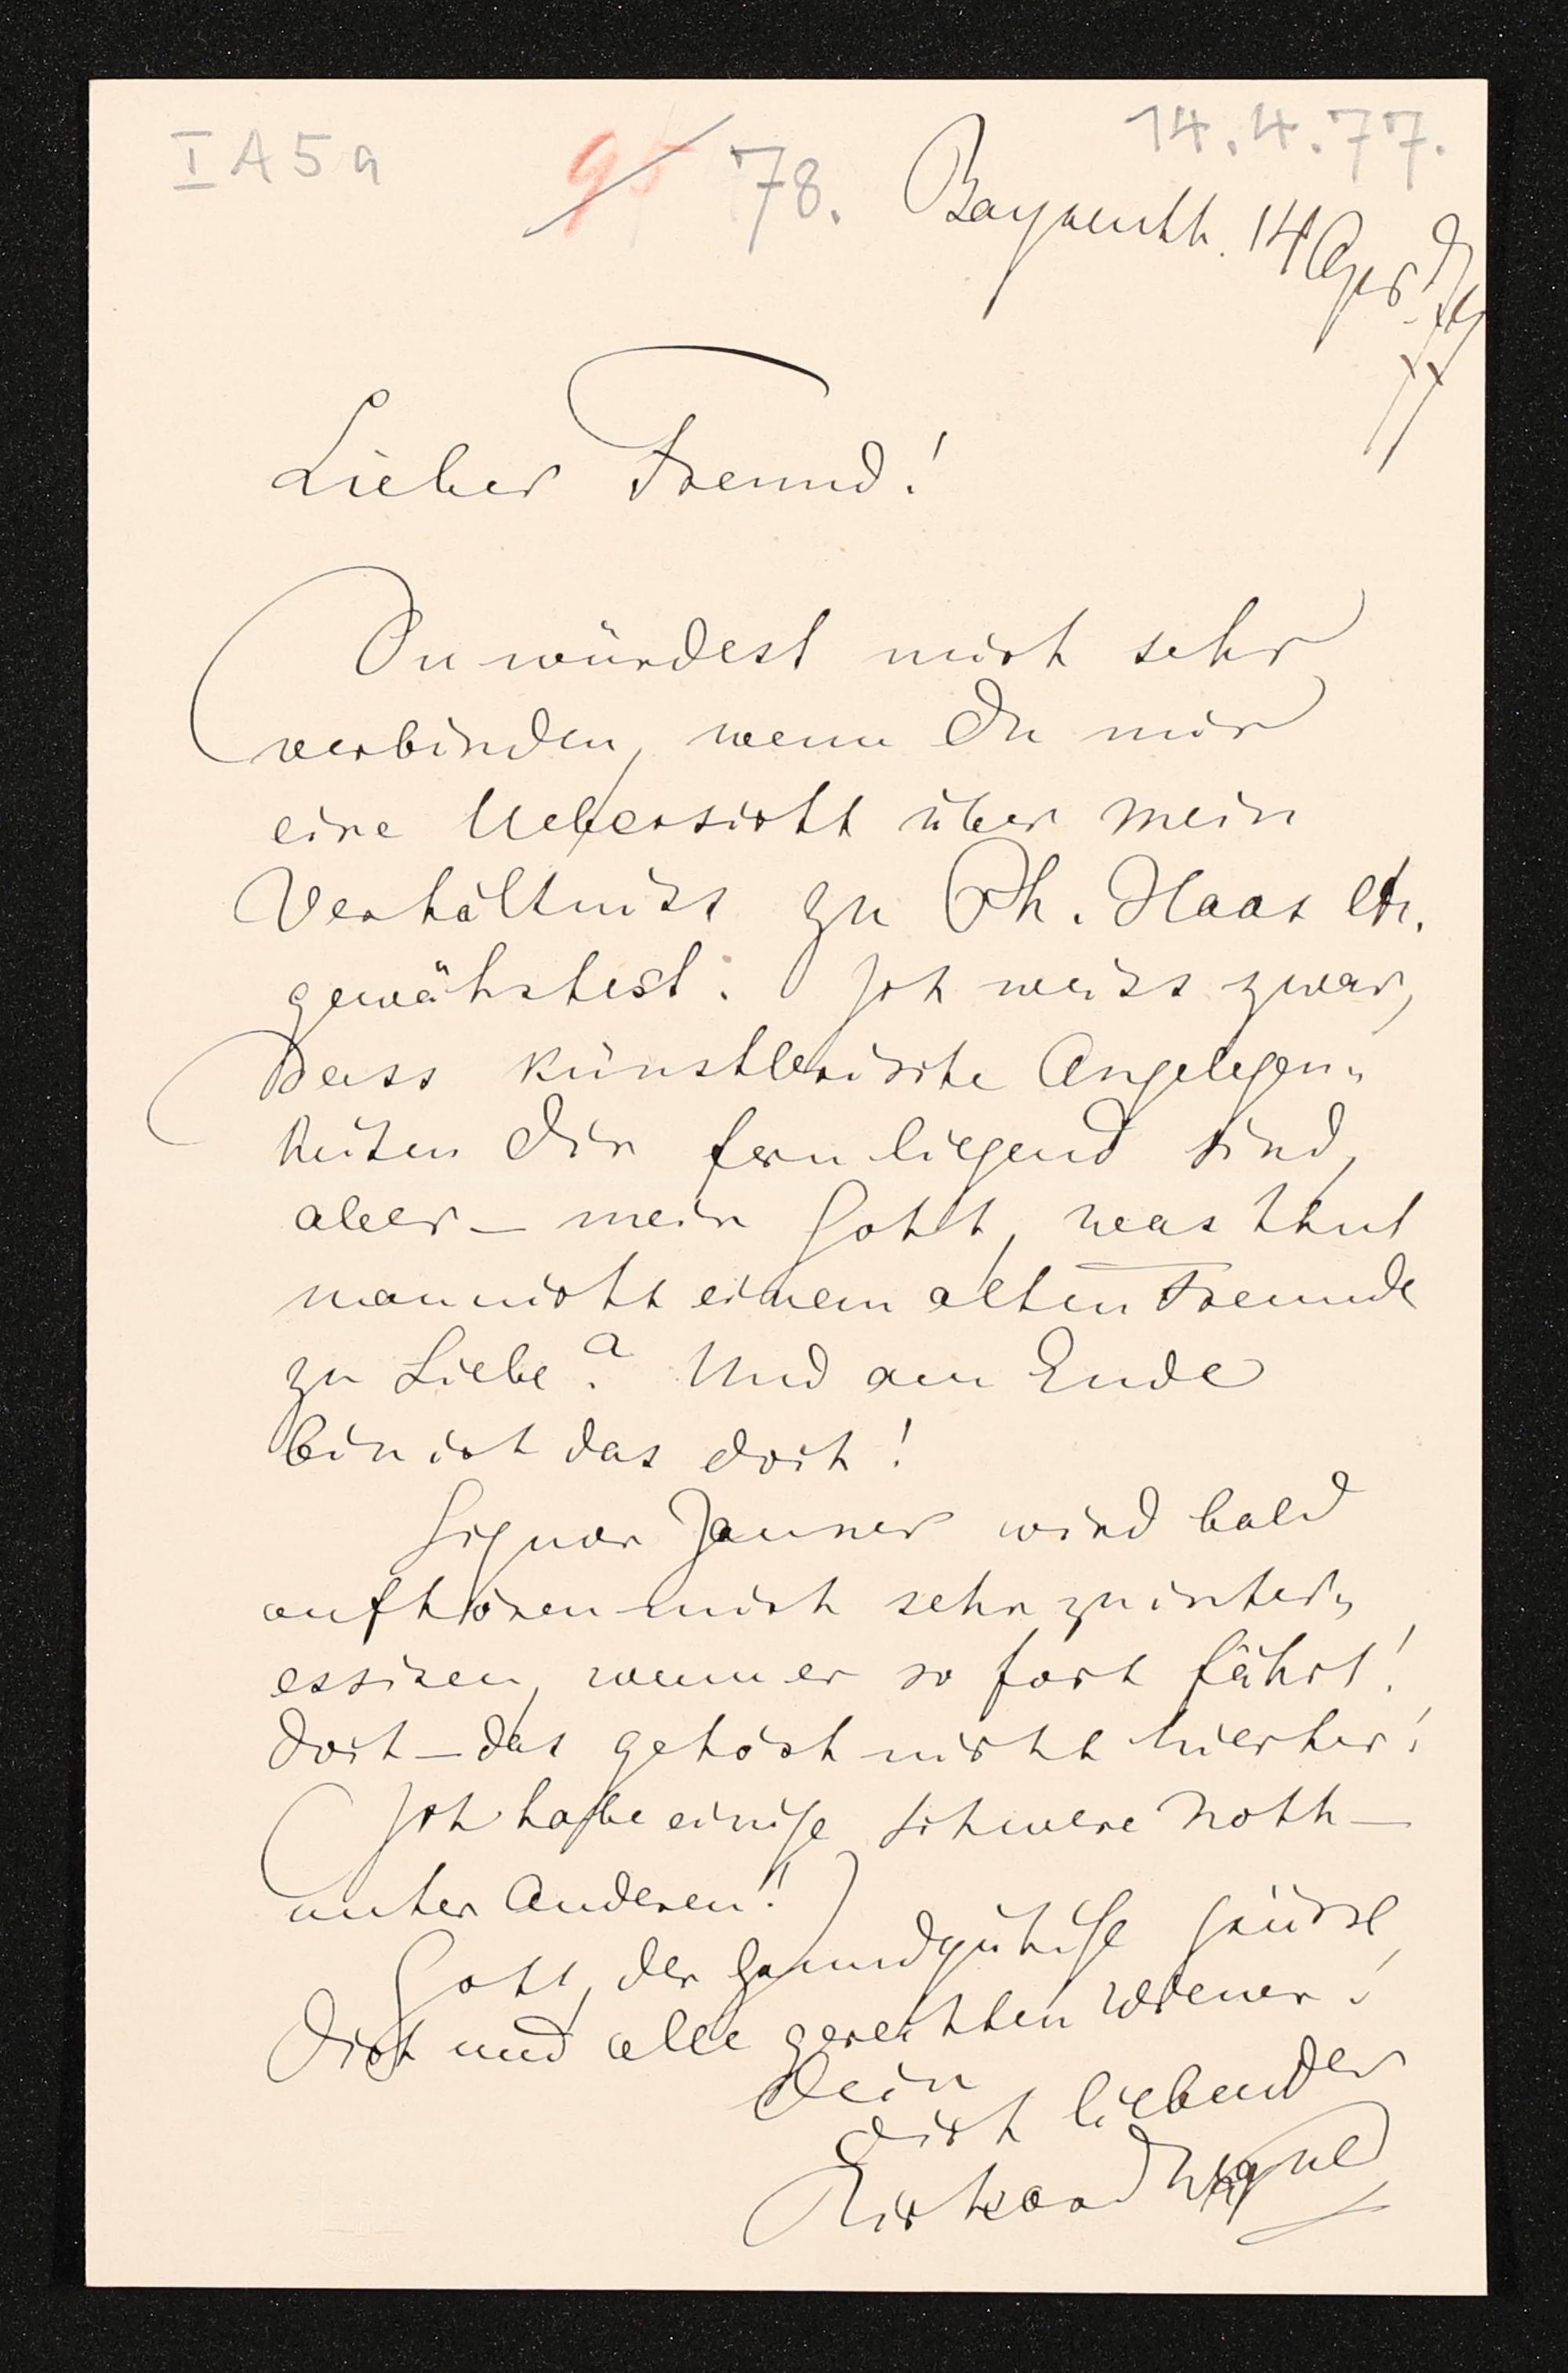 I A 5 a
95 78.
14.4.77.
Bayreuth. 14 Apr.
77
Lieber Freund!
Du würdest mich sehr
verbinden, wenn Du mir
eine Uebersicht über mein
Verhältniss zu Ph. Haas etc.
gewährtest. Ich weiss zwar,
dass künstlerische Angelegen-
heiten Dir fern liegend sind,
aber – mein Gott, was thut
man nicht einem alten Freunde
zu Liebe? Und am Ende
bin ich das doch!
Signor Jauner wird bald
aufhören mich sehr zu inter-
essiren, wenn er so fort fährt!
Doch – das gehört nicht hierher!
(Ich habe einige schwere Noth –
unter Anderen!)
Gott, der Grundgütige grüsse
Dich und alle gerechten Wiener!
Dein
Dich liebender
Richard Wagner